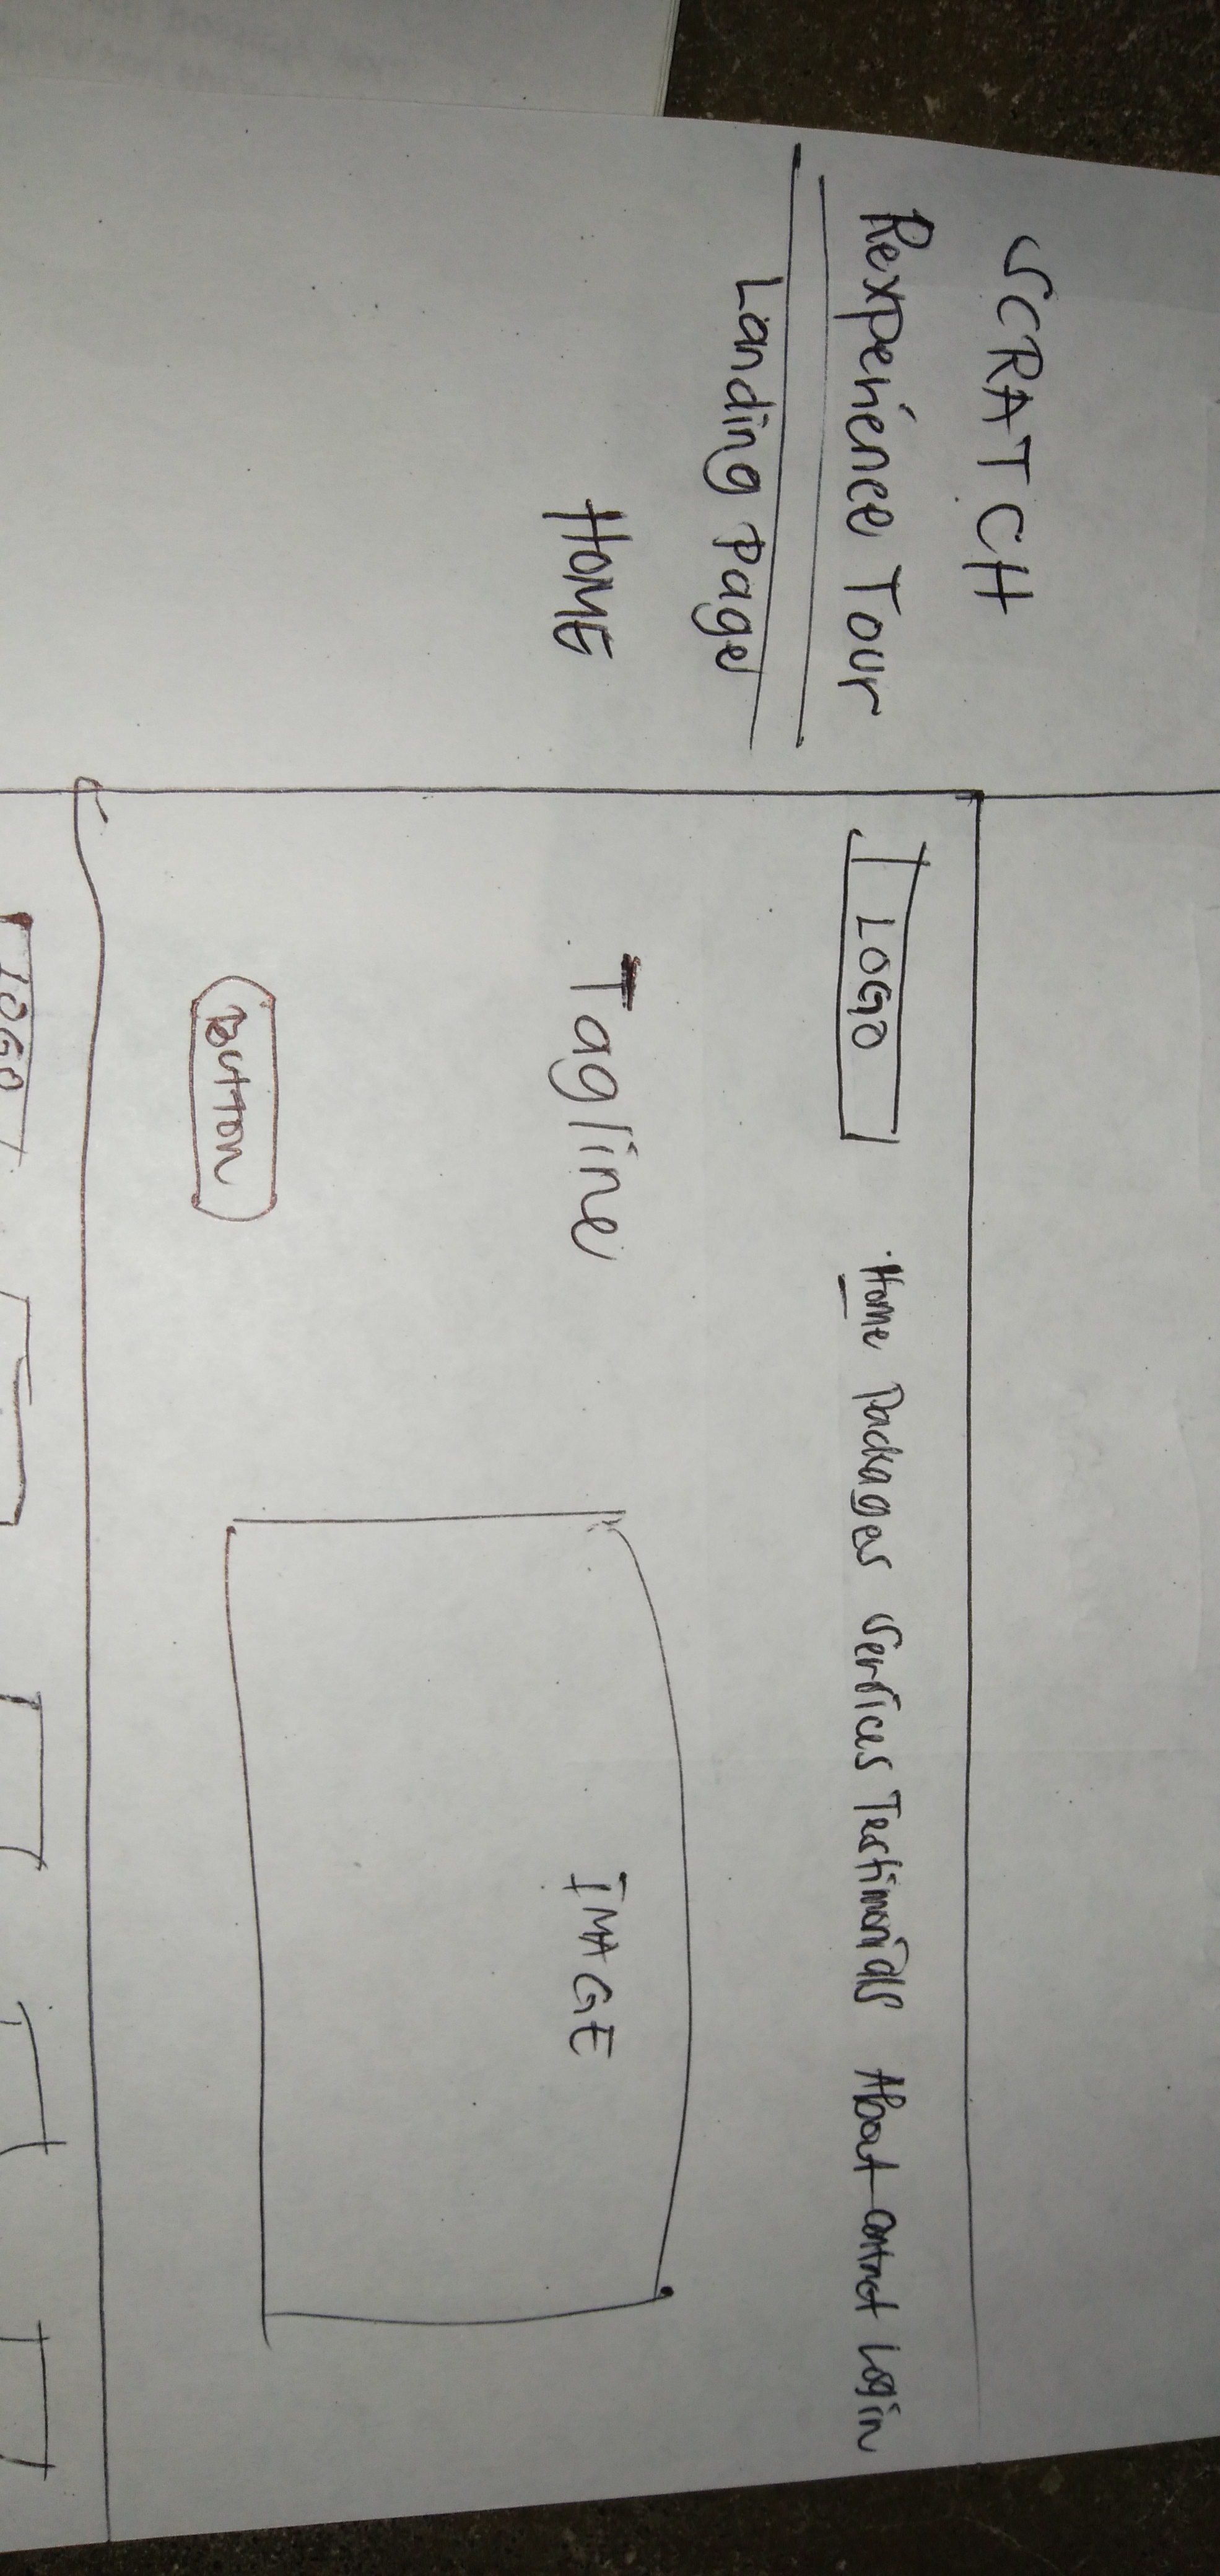 SCRATCH
Rexperience Tour
Landing Page
HOME
LOGO
Home Packages Services Testimonials About Contact Login
Tagline
IMAGE
Button
LOGO